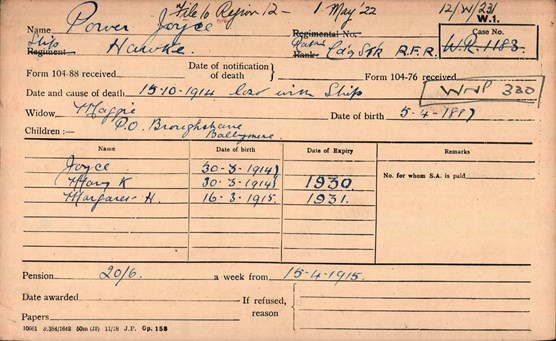 File to Region 12 - 1 May '22 12/W/231
W.1.
Name Power Joyce Regimental No. Case No.
Ship Regiment Hawke. Rank Ldg Stk R.F.R. W.R.1183.
Form 104-88 received Date of notification of death } Form 104-76 received
Date and cause of death 15-10-1914 lost with Ship WNP 320
Widow Maggie Date of birth 5-4-1887
P.O. Broughshane
Children :— Ballymena
Name Date of birth Date of Expiry Remarks
Joyce 30-3-1914) No. for whom S.A. is paid
Mary K 30-3-1914) 1930.
Margaret H. 16-3-1915. 1931.
Pension 20/6. a week from 15-4-1915.
Date awarded If refused, reason }
Papers
50m 11/18 J.P. Gp. 158